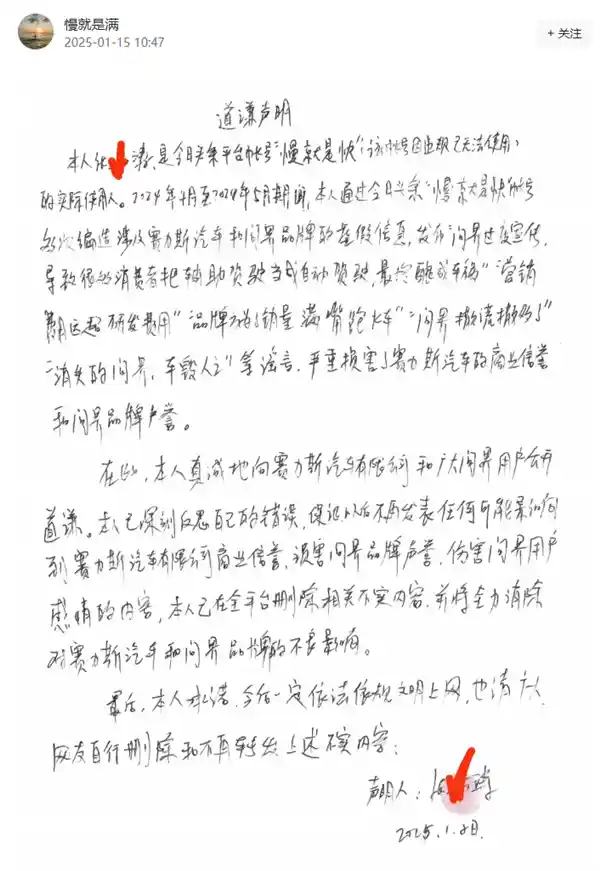 慢就是满
2025-01-15 10:47
+ 关注
道谦声明
本人 涛,是今日头条平台帐号“慢就是快”(该帐号因违规已无法使用)
的实际使用人。2024年4月至2024年5月期间,本人通过今日头条“慢就是快”帐号
多次编造涉及赛力斯汽车和问界品牌的虚假信息,发布“问界过度宣传,
导致很多消费者把辅助驾驶当成自动驾驶,最终酿成车祸”“营销
费用远超研发费用”“品牌 销量满嘴跑火车”“问界撤谎撤 了”
“消失的问界,车毁人亡”等谣言,严重损害了赛力斯汽车的商业信誉
和问界品牌声誉。
在此,本人真诚地向赛力斯汽车有限公司和广大问界用户公开
道谦。本人已深刻反思自己的错误,保证以后不再发表任何可能影响
到赛力斯汽车有限公司商业信誉、损害问界品牌声誉、伤害问界用户
感情的内容,本人已在全平台删除相关不实内容,并将全力消除
对赛力斯汽车和问界品牌的不良影响。
最后,本人承诺,今后一定依法依规文明上网,也请广大
网友自行删除和不再转发上述不实内容;
声明人:
2025.1. 日.